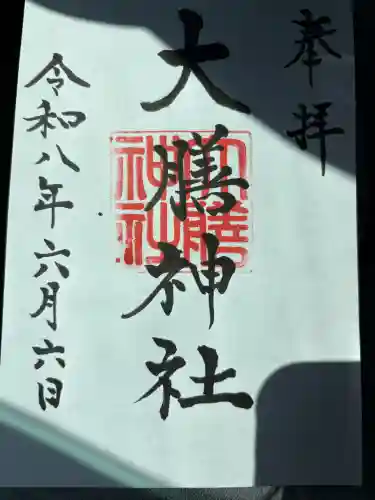 奉拝
大膳神社
大膳
神社
令和八年六月六日